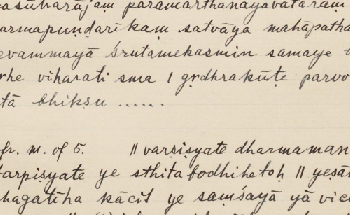 asūtrarājam paramārthanayāvatāram
armapuṇḍarīkaṃ satvāya mahāpatha
evammayā śrutamekasmin samaye
rhe viharati sma | gṛdhrakūṭe parvo
tā bhikṣu ......
fr. m. of 5. || varṣiṣyate dharmaman
tarpiṣyate ye sthita bodhihetoḥ || yeṣā
hagatīha kācit ye saṃśayā yā vic